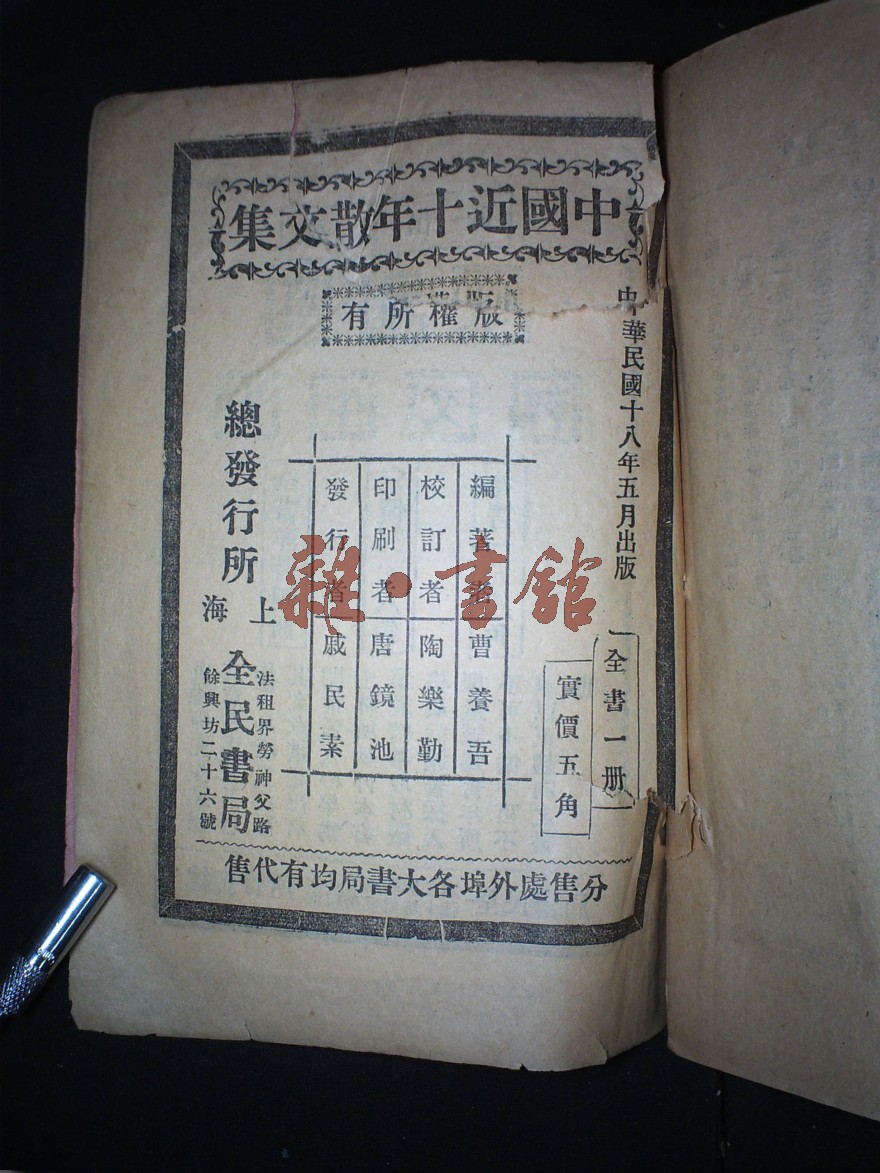 中國近十年散文集
版權所有
中華民國十八年五月出版
全書一册
實價五角
編著者曹養吾
校訂者陶樂勤
印刷者唐鏡池
發行者戚民素
總發行所
上海
法租界勞神父路
全民書局
餘興坊二十六號
分售處外埠各大書局均有代售
雜·書館